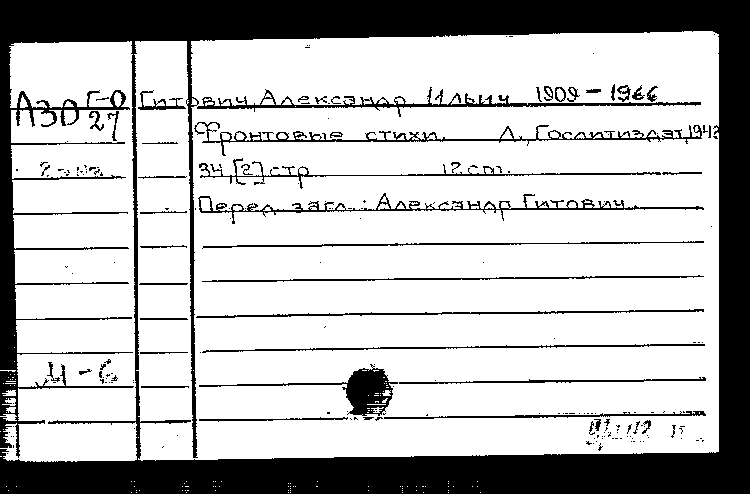 А30 Г-О/27 Гитович, Александр Ильич 1909 - 1966
Фронтовые стихи. Л., Гослитиздат, 1943
2 экз. 34, [2] стр 12 см.
Перед загл.: Александр Гитович.
М-6